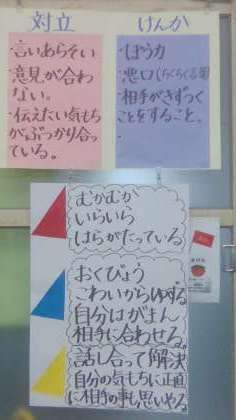 対立
・言いあらそい
・意見が合わ
ない。
・伝えたい気もち
がぶつかり合っ
ている。
けんか
・ぼう力
・悪口(ちくちく言葉)
・相手がきずつく
ことをすること。
・
むかむか
いらいら
はらがたっている
おくびょう
こわいからゆずる
自分はがまん
相手に合わせる。
話し合って解決
自分の気もちに正直
に相手の事も思いやる。